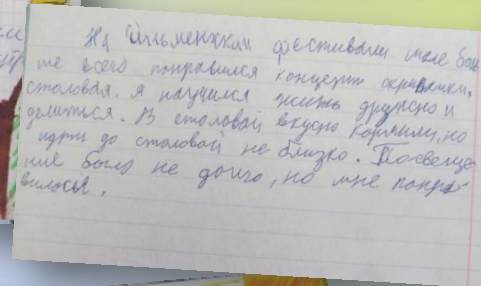 На Ильменскии фестивали мне боль
ше всего понравился концерт скрипки,
столовая. Я научился жить дружно и
делиться. В столовой вкусно кормили, но
идти до столовой не близко. Посвеще
ние было не долго, но мне понра-
вилось.